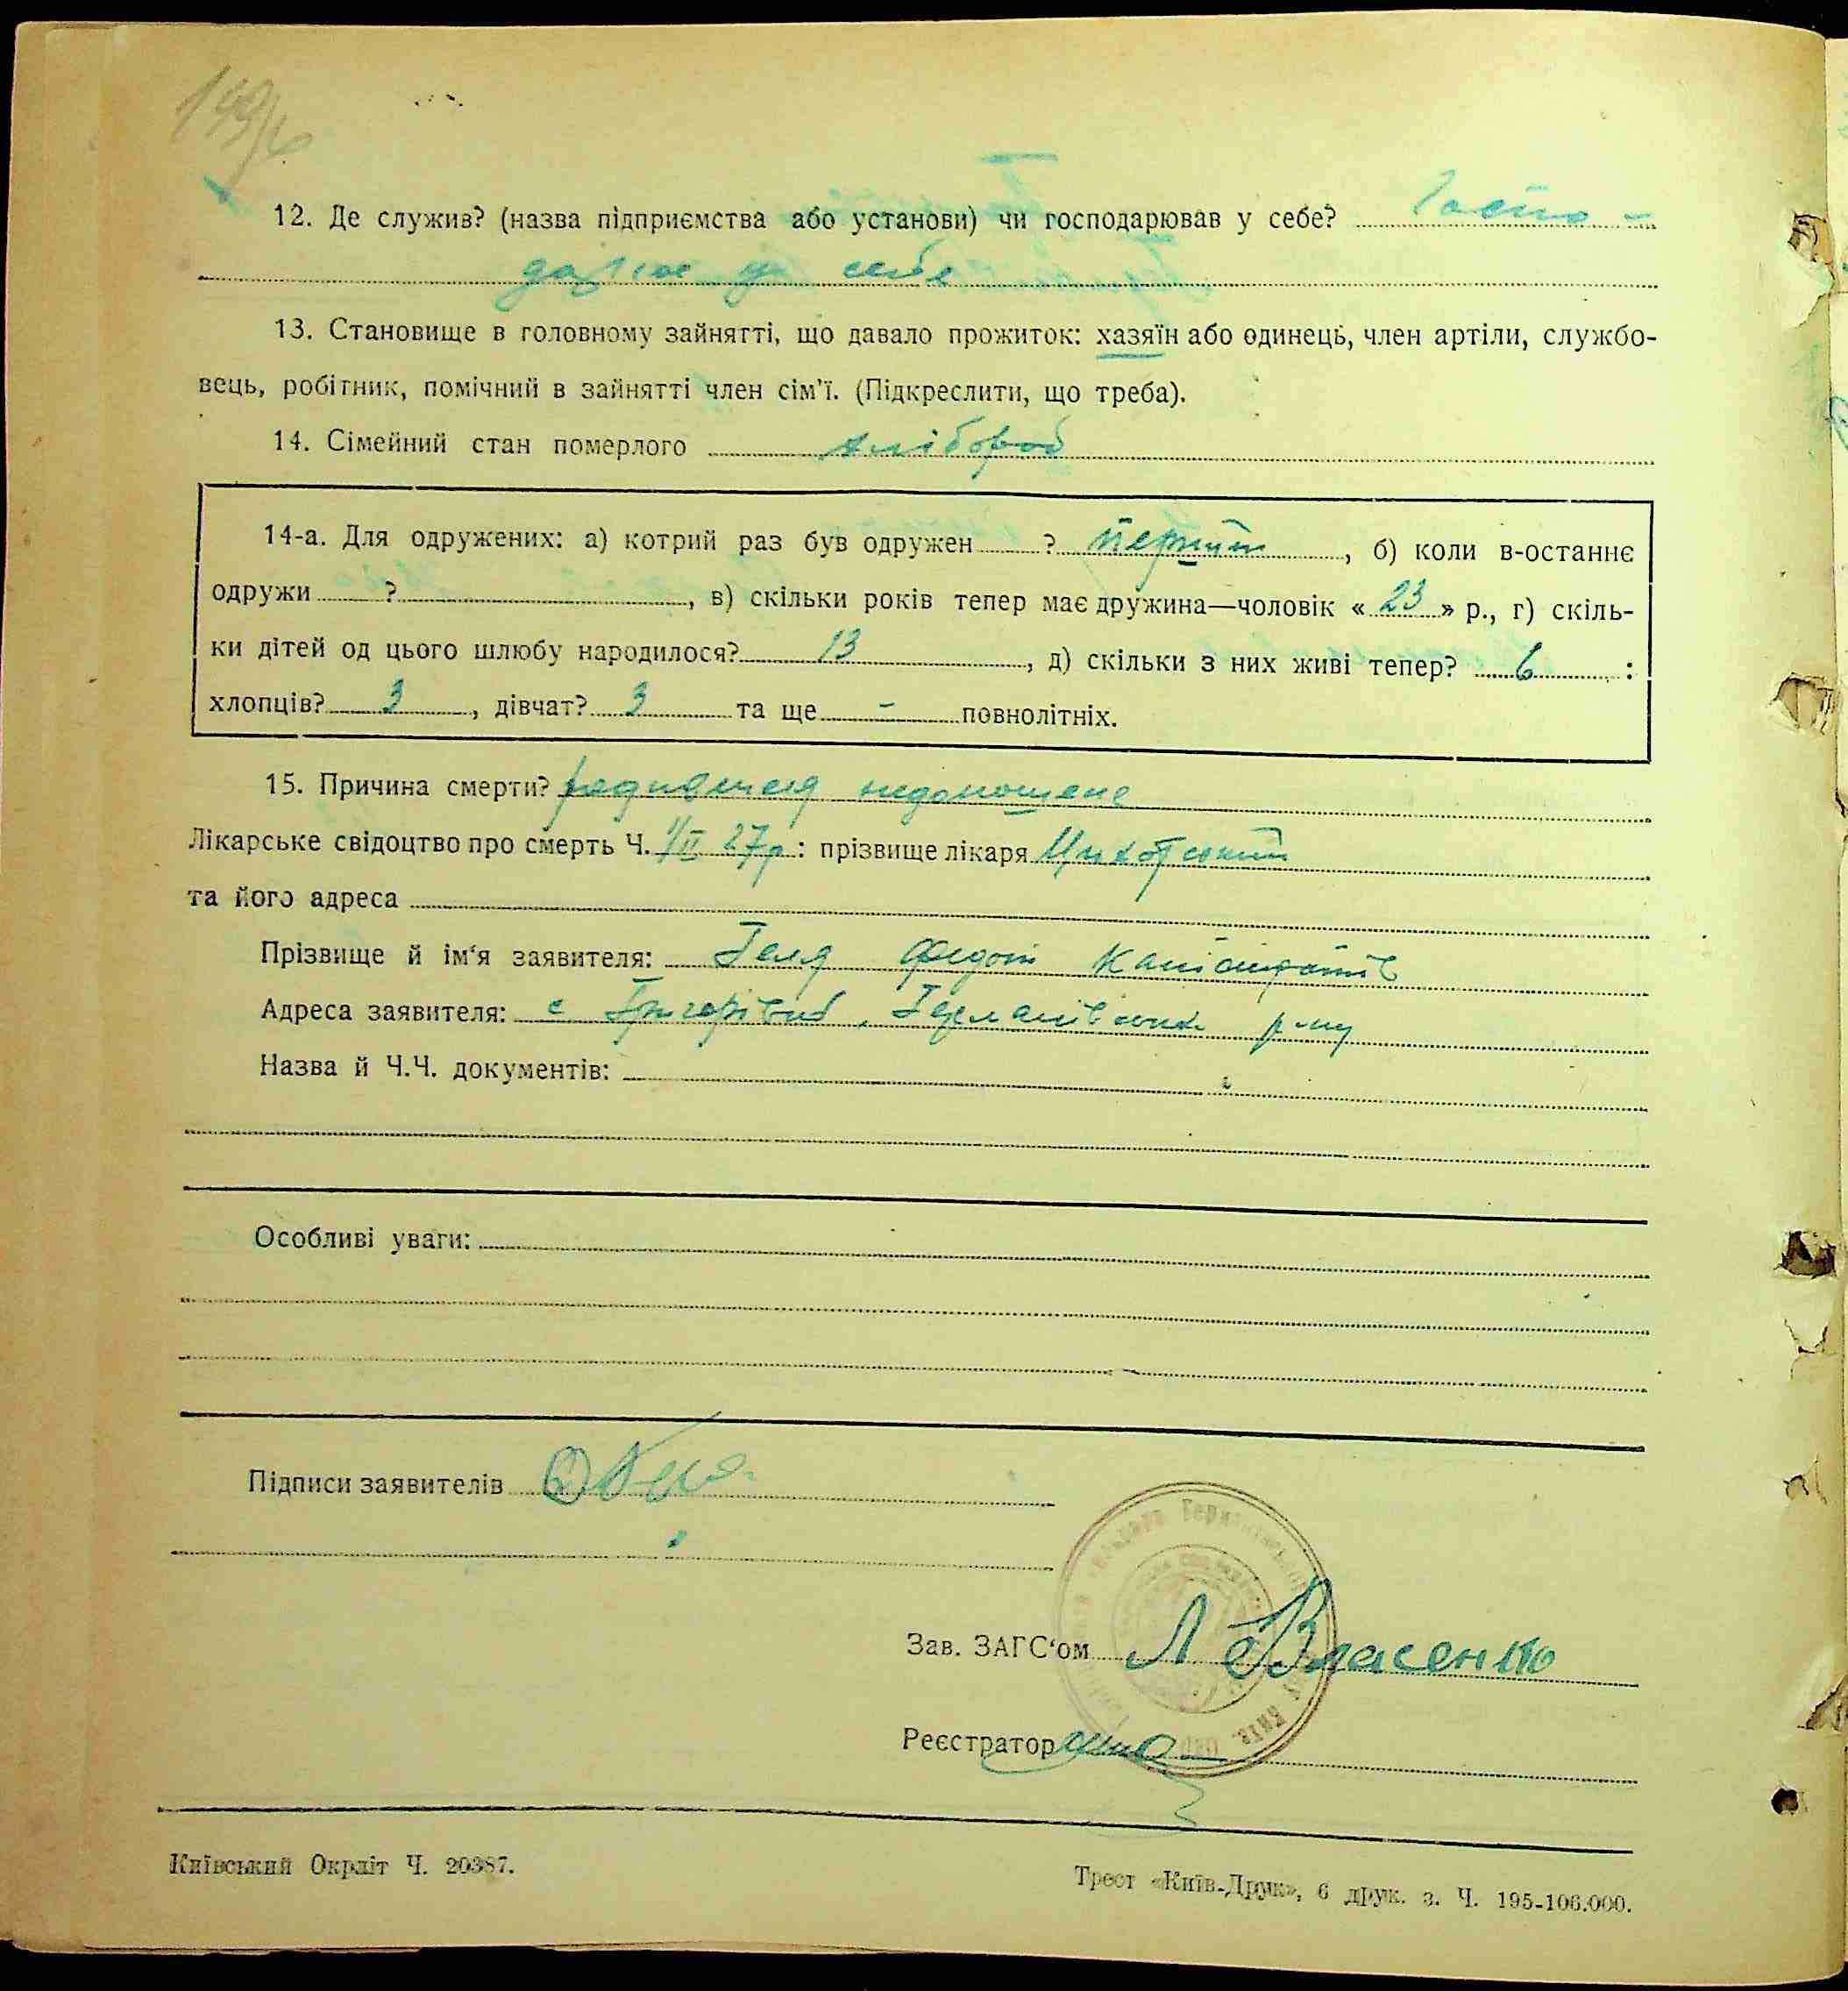 12. Де служив? (назва підприємства або установи) чи господарював у себе? Госпо-
дарює у себе
13. Становище в головному зайнятті, що давало прожиток: хазяїн або одинець, член артіли, службо-
вець, робітник, помічний в зайнятті член сім'ї. (Підкреслити, що треба).
14. Сімейний стан померлого хлібороб
14-а. Для одружених: а) котрий раз був одружен ? перший, б) коли в-останнє
одружи ? , в) скільки років тепер має дружина—чоловік « 23 » р., г) скіль-
ки дітей од цього шлюбу народилося? 13 , д) скільки з них живі тепер? 6 :
хлопців? 3 , дівчат? 3 та ще - повнолітніх.
15. Причина смерти? недоношене
Лікарське свідоцтво про смерть Ч. 1/II 27р : прізвище лікаря
та його адреса
Прізвище й ім'я заявителя: Геля Федот
Адреса заявителя: с Григорівка, Германівськ. р-ну
Назва й Ч.Ч. документів:
Особливі уваги:
Підписи заявителів
Зав. ЗАГС'ом Власенко
Реєстратор
Київський Окрліт Ч. 20387.
Трест «Київ-Друк», 6 друк. з. Ч. 195-106.000.